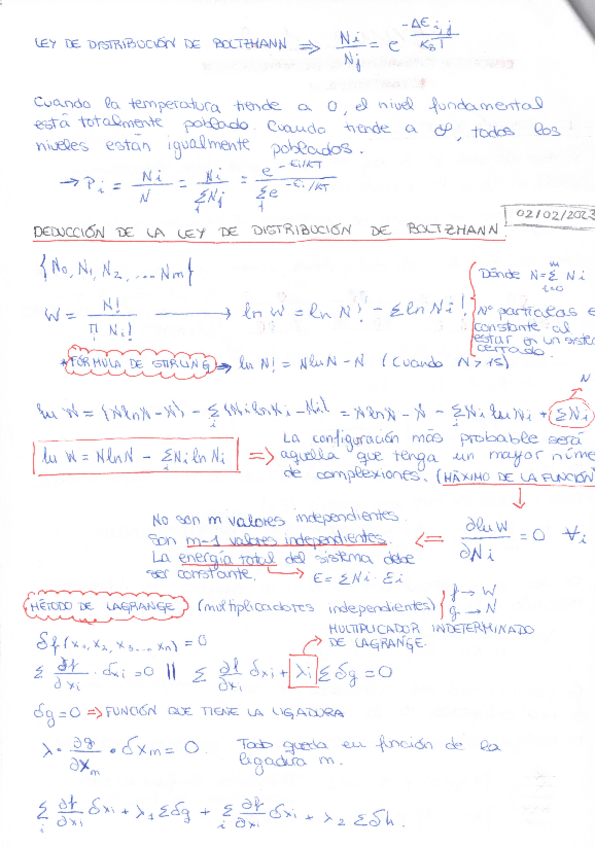 LEY DE DISTRIBUCIÓN DE BOLTZMANN ⇒ Ni/Nj = e^(-ΔE i,j / KbT)
Cuando la temperatura tiende a 0, el nivel fundamental
está totalmente poblado. Cuando tiende a ∞, todos los
niveles están igualmente poblados.
→ Pi = Ni/N = Ni/ΣNj = e^(-εi/KT) / Σ e^(-εi/KT)
02/02/2023
DEDUCCIÓN DE LA LEY DE DISTRIBUCIÓN DE BOLTZMANN.
{N0, N1, N2, ... Nm}
W = N!/Π Ni! → ln W = ln N! - Σ ln Ni!
Dónde N = Σ Ni
Nº partículas e
constante al
estar en un siste
cerrado.
* FÓRMULA DE STIRLING → ln N! = NlnN - N (Cuando N > 15)
ln W = (NlnN - N) - Σ(Ni lnNi - Ni) = NlnN - N - Σ Ni lnNi + ΣNi
N
ln W = NlnN - ΣNi ln Ni
⇒ La configuración más probable será
aquella que tenga un mayor núme
de complexiones. (MÁXIMO DE LA FUNCIÓN)
No son m valores independientes.
Son m-1 valores independientes.
⇐ ∂lnW/∂Ni = 0 ∀i
La energía total del sistema debe
ser constante. → E = ΣNi · Ei
MÉTODO DE LAGRANGE (multiplicadores independientes) { f → W
g → N
MULTIPLICADOR INDETERMINADO
DE LAGRANGE.
δf(x1, x2, x3, ... xn) = 0
Σ ∂f/∂xi · δxi = 0 || Σ ∂f/∂xi δxi + λi Σ δg = 0
δg = 0 ⇒ FUNCIÓN QUE TIENE LA LIGADURA
λ · ∂g/∂Xm · δXm = 0. Todo queda en función de la
ligadura m.
Σ ∂f/∂xi δxi + λ1 Σδg + Σ ∂f/∂xi δxi + λ2 Σδh.